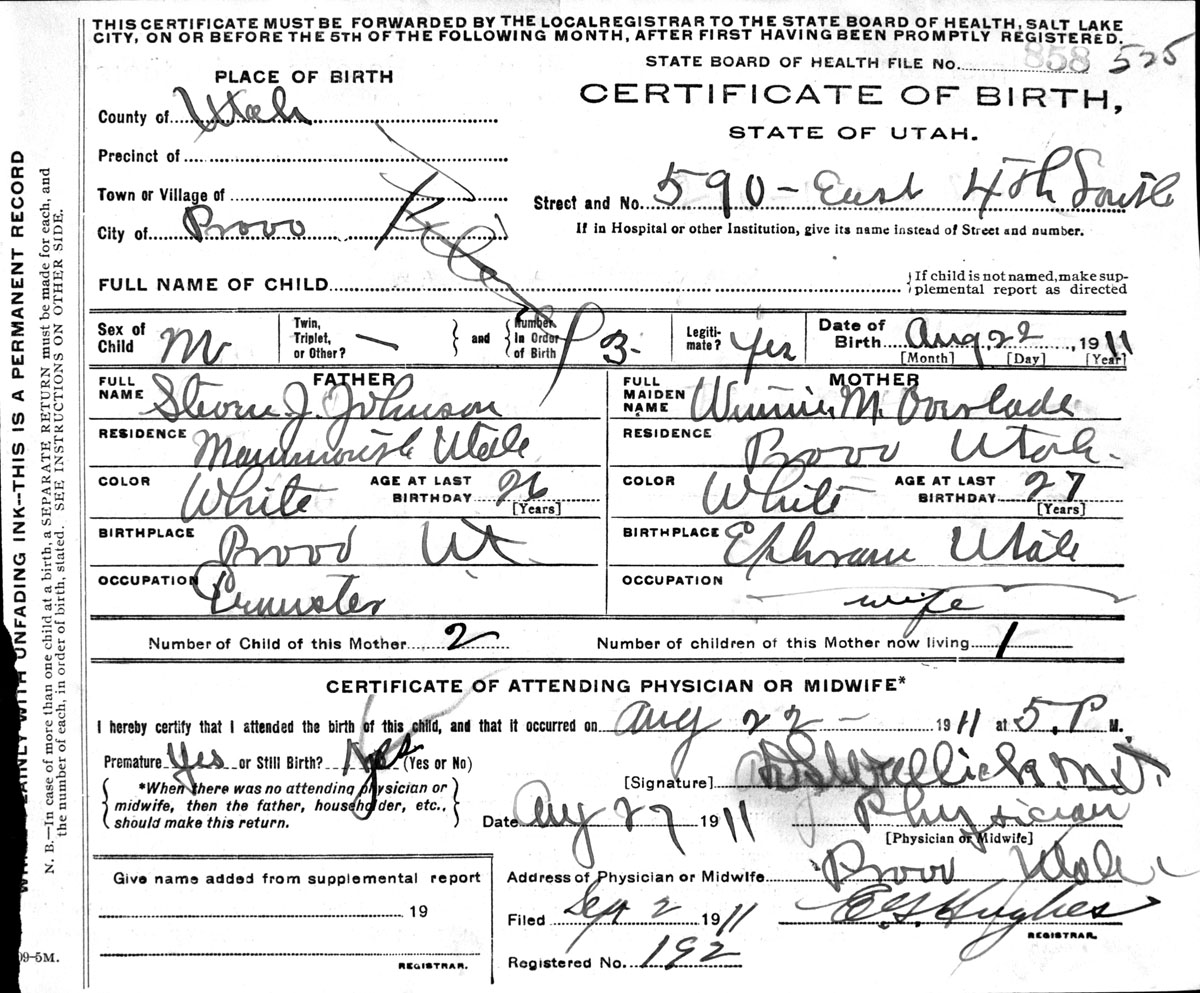 THIS CERTIFICATE MUST BE FORWARDED BY THE LOCAL REGISTRAR TO THE STATE BOARD OF HEALTH, SALT LAKE
CITY, ON OR BEFORE THE 5TH OF THE FOLLOWING MONTH, AFTER FIRST HAVING BEEN PROMPTLY REGISTERED.
STATE BOARD OF HEALTH FILE NO. 858 525
PLACE OF BIRTH
CERTIFICATE OF BIRTH,
STATE OF UTAH.
County of Utah
Precinct of
Town or Village of
Street and No. 590 - East 4th South
City of Provo
If in Hospital or other Institution, give its name instead of Street and number.
FULL NAME OF CHILD
{If child is not named, make sup-
plemental report as directed
Sex of Child M
Twin, Triplet, or Other? —
and
Number in Order of Birth 3
Legiti-mate? Yes
Date of Birth Aug, 22, 1911
[Month] [Day] [Year]
FATHER
MOTHER
FULL NAME J. Johnson
FULL MAIDEN NAME Winnie M.
RESIDENCE Mammoth Utah
RESIDENCE Provo Utah.
COLOR White AGE AT LAST BIRTHDAY 26 [Years]
COLOR White AGE AT LAST BIRTHDAY 27 [Years]
BIRTHPLACE Provo Ut.
BIRTHPLACE Ephraim Utah
OCCUPATION
OCCUPATION wife
Number of Child of this Mother 2
Number of children of this Mother now living 1
CERTIFICATE OF ATTENDING PHYSICIAN OR MIDWIFE*
I hereby certify that I attended the birth of this child, and that it occurred on Aug 22 - 1911 at 5. P M.
Premature Yes or Still Birth? yes (Yes or No)
[Signature] M.D.
*When there was no attending physician or
midwife, then the father, householder, etc.,
should make this return.
Date Aug 27 1911
Physician
[Physician or Midwife]
Give name added from supplemental report
19
REGISTRAR.
Address of Physician or Midwife Provo Utah
Filed Sept 2 1911 Hughes
REGISTRAR.
Registered No. 192
PLAINLY WITH UNFADING INK--THIS IS A PERMANENT RECORD
N. B.—In case of more than one child at a birth, a SEPARATE RETURN must be made for each, and
the number of each, in order of birth, stated. SEE INSTRUCTIONS ON OTHER SIDE.
09-5M.